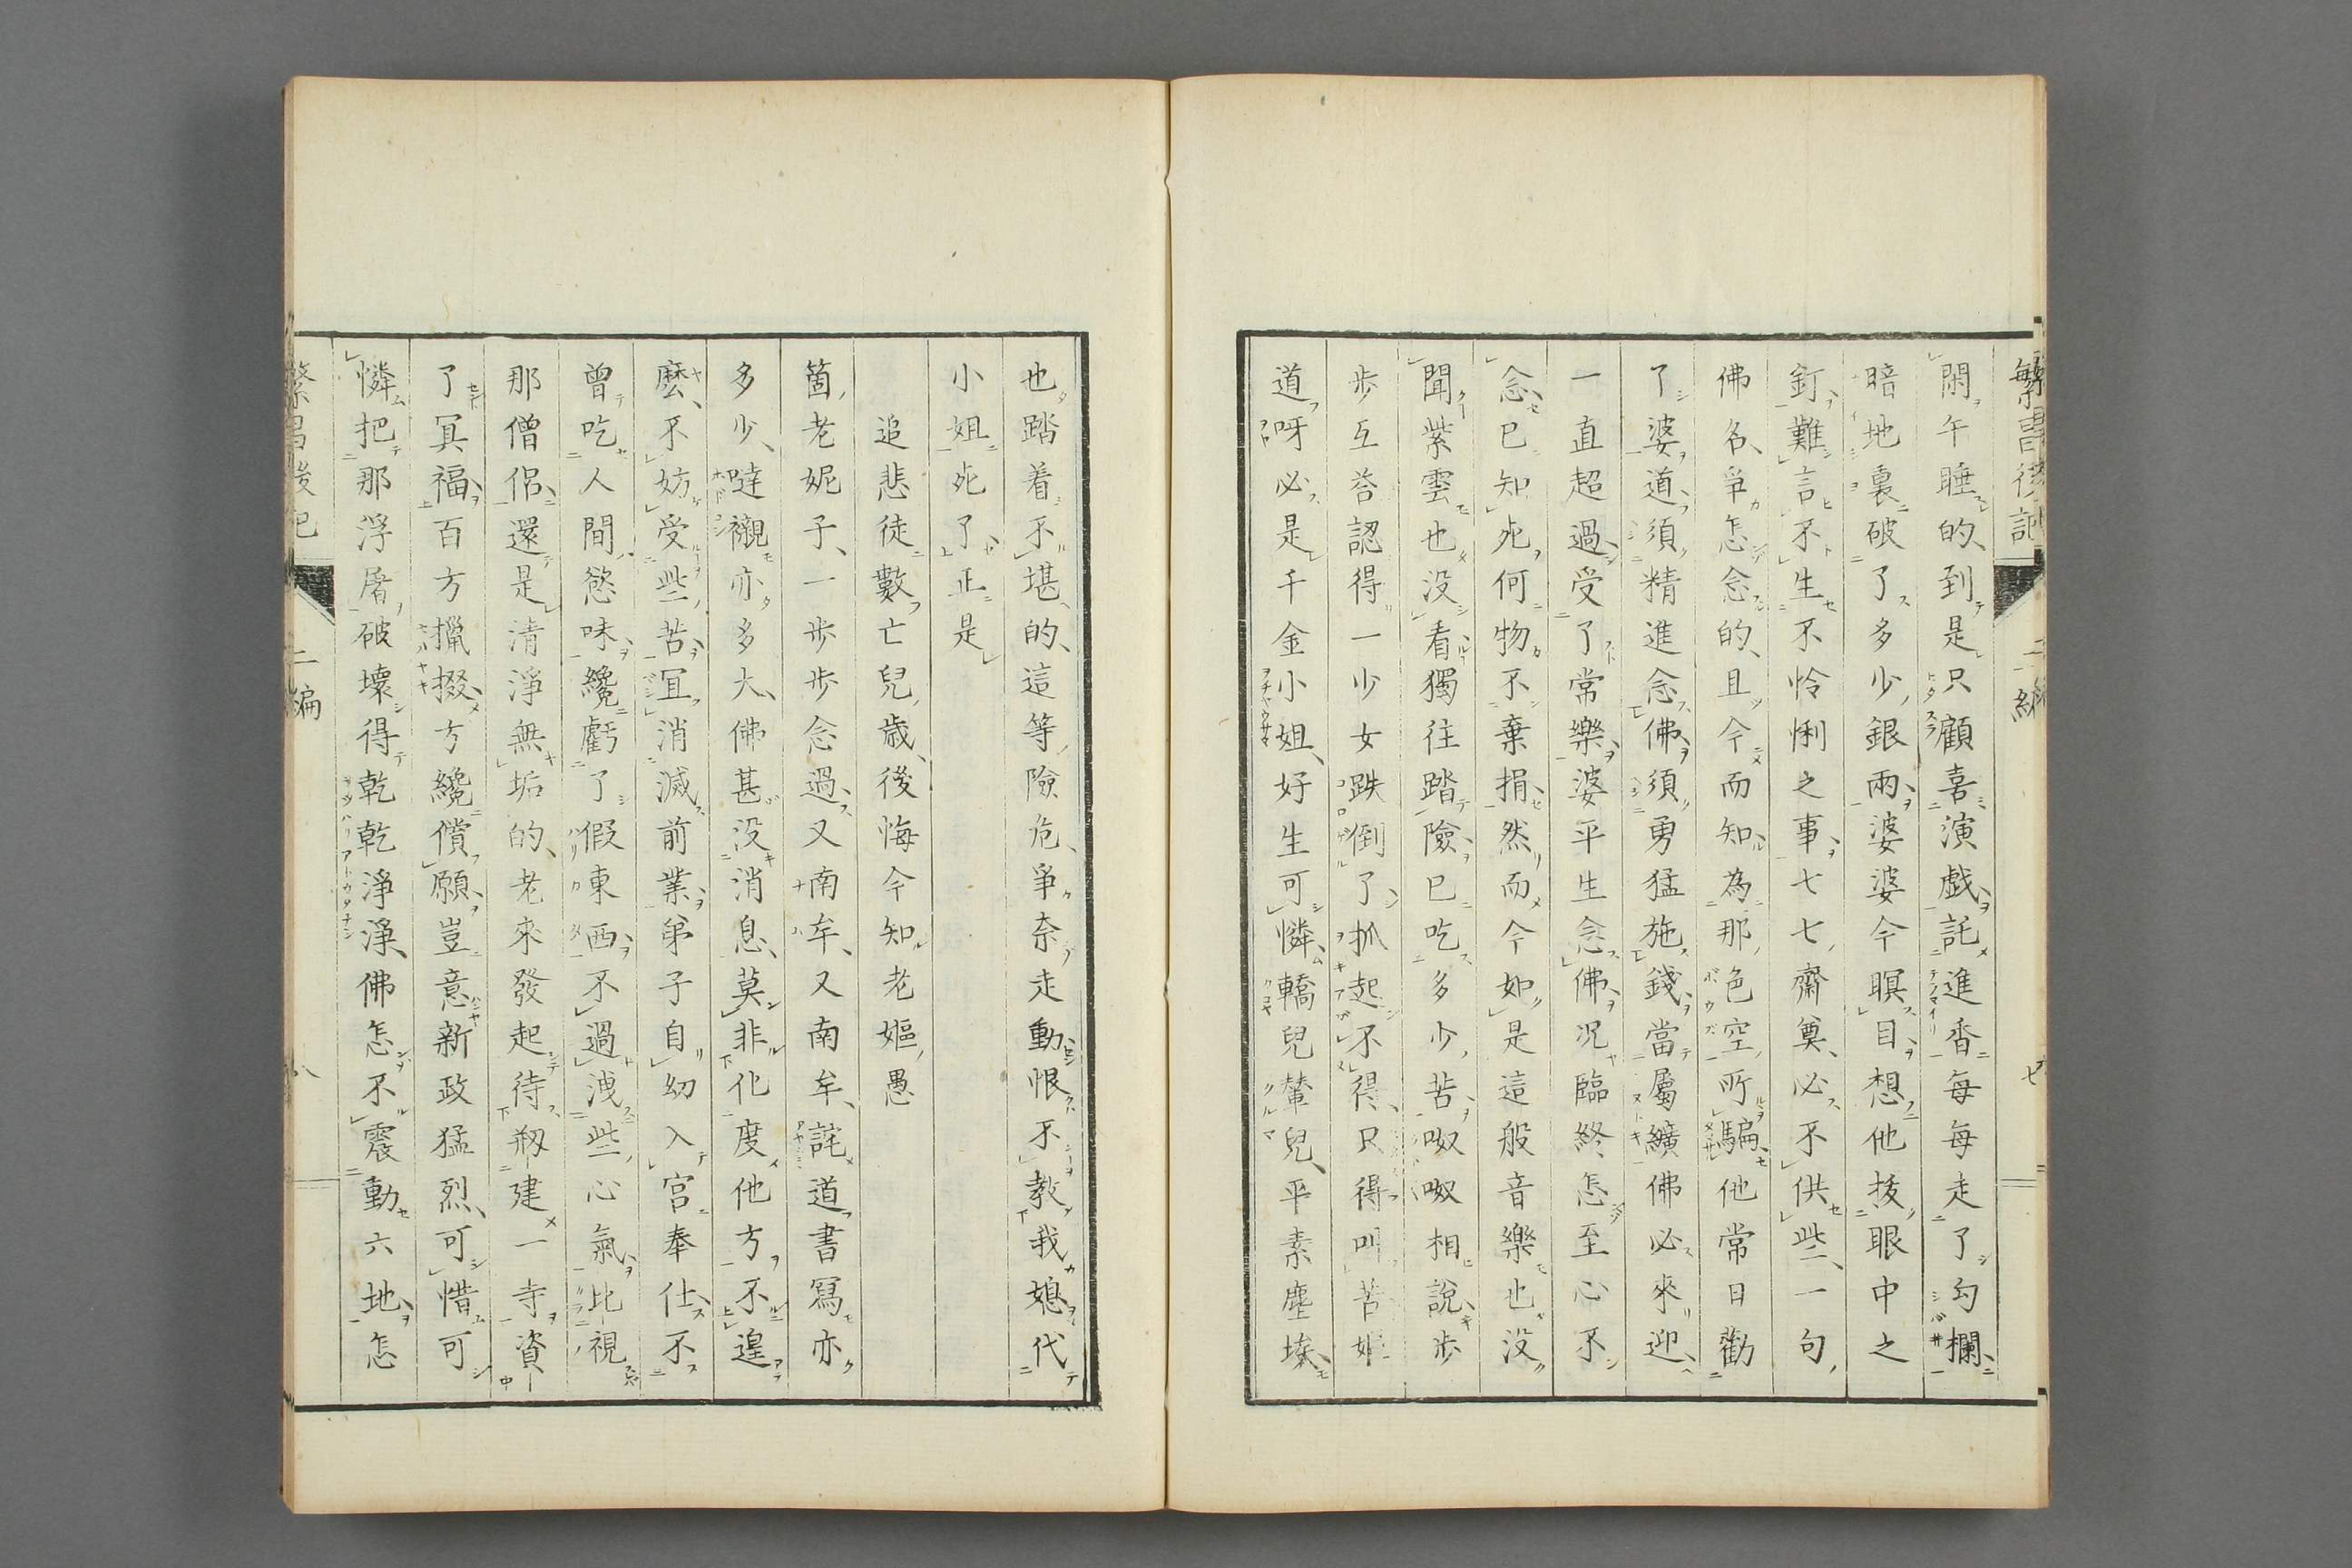 閑午睡的、到是只顧喜演戯、託進香每每走了勾欄、
暗地裏破了多少銀兩、婆婆今瞑目想他拔眼中之
釘、難言不生不怜悧之事、七七齋奠、必不供些、一句
佛名、爭怎念的、且今而知為那色空所騙、他常日勸
了婆道、須精進念佛、須勇猛施錢、當屬纊佛必來迎、
一直超過、受了常樂、婆平生念佛、况臨終怎至心不
念、已知死何物不棄捐、然而今如是這般音樂也没
聞、紫雲也没看、獨往踏險、已吃多少苦、呶呶相說、步
步互荅認得一少女跌倒了、抓起不得、只得叫苦、婢
道呀必是千金小姐、好生可憐、轎兒輦兒、平素塵埃、
也踏着不堪的、這等險危、爭奈走動、恨不教我媳代
小姐死了、正是
追悲徒數亡兒歳、後悔今知老嫗愚
箇老妮子、一歩歩念過、又南牟、又南牟、詫道書寫亦
多少、噠襯亦多大、佛甚没消息、莫非化度他方、不遑
麼、不妨受些苦、宜消滅前業、弟子自幼入宫奉仕、不
曾吃人間慾味、纔虧了假東西、不過洩些心氣、比視
那僧侶、還是清淨無垢的、老來發起待剏建一寺資
了冥福、百方攛掇、方纔償願、豈意新政猛烈、可惜可
憐把那浮屠破壞得乾乾淨淨、佛怎不震動六地、怎
繁昌後記
二編
七
八